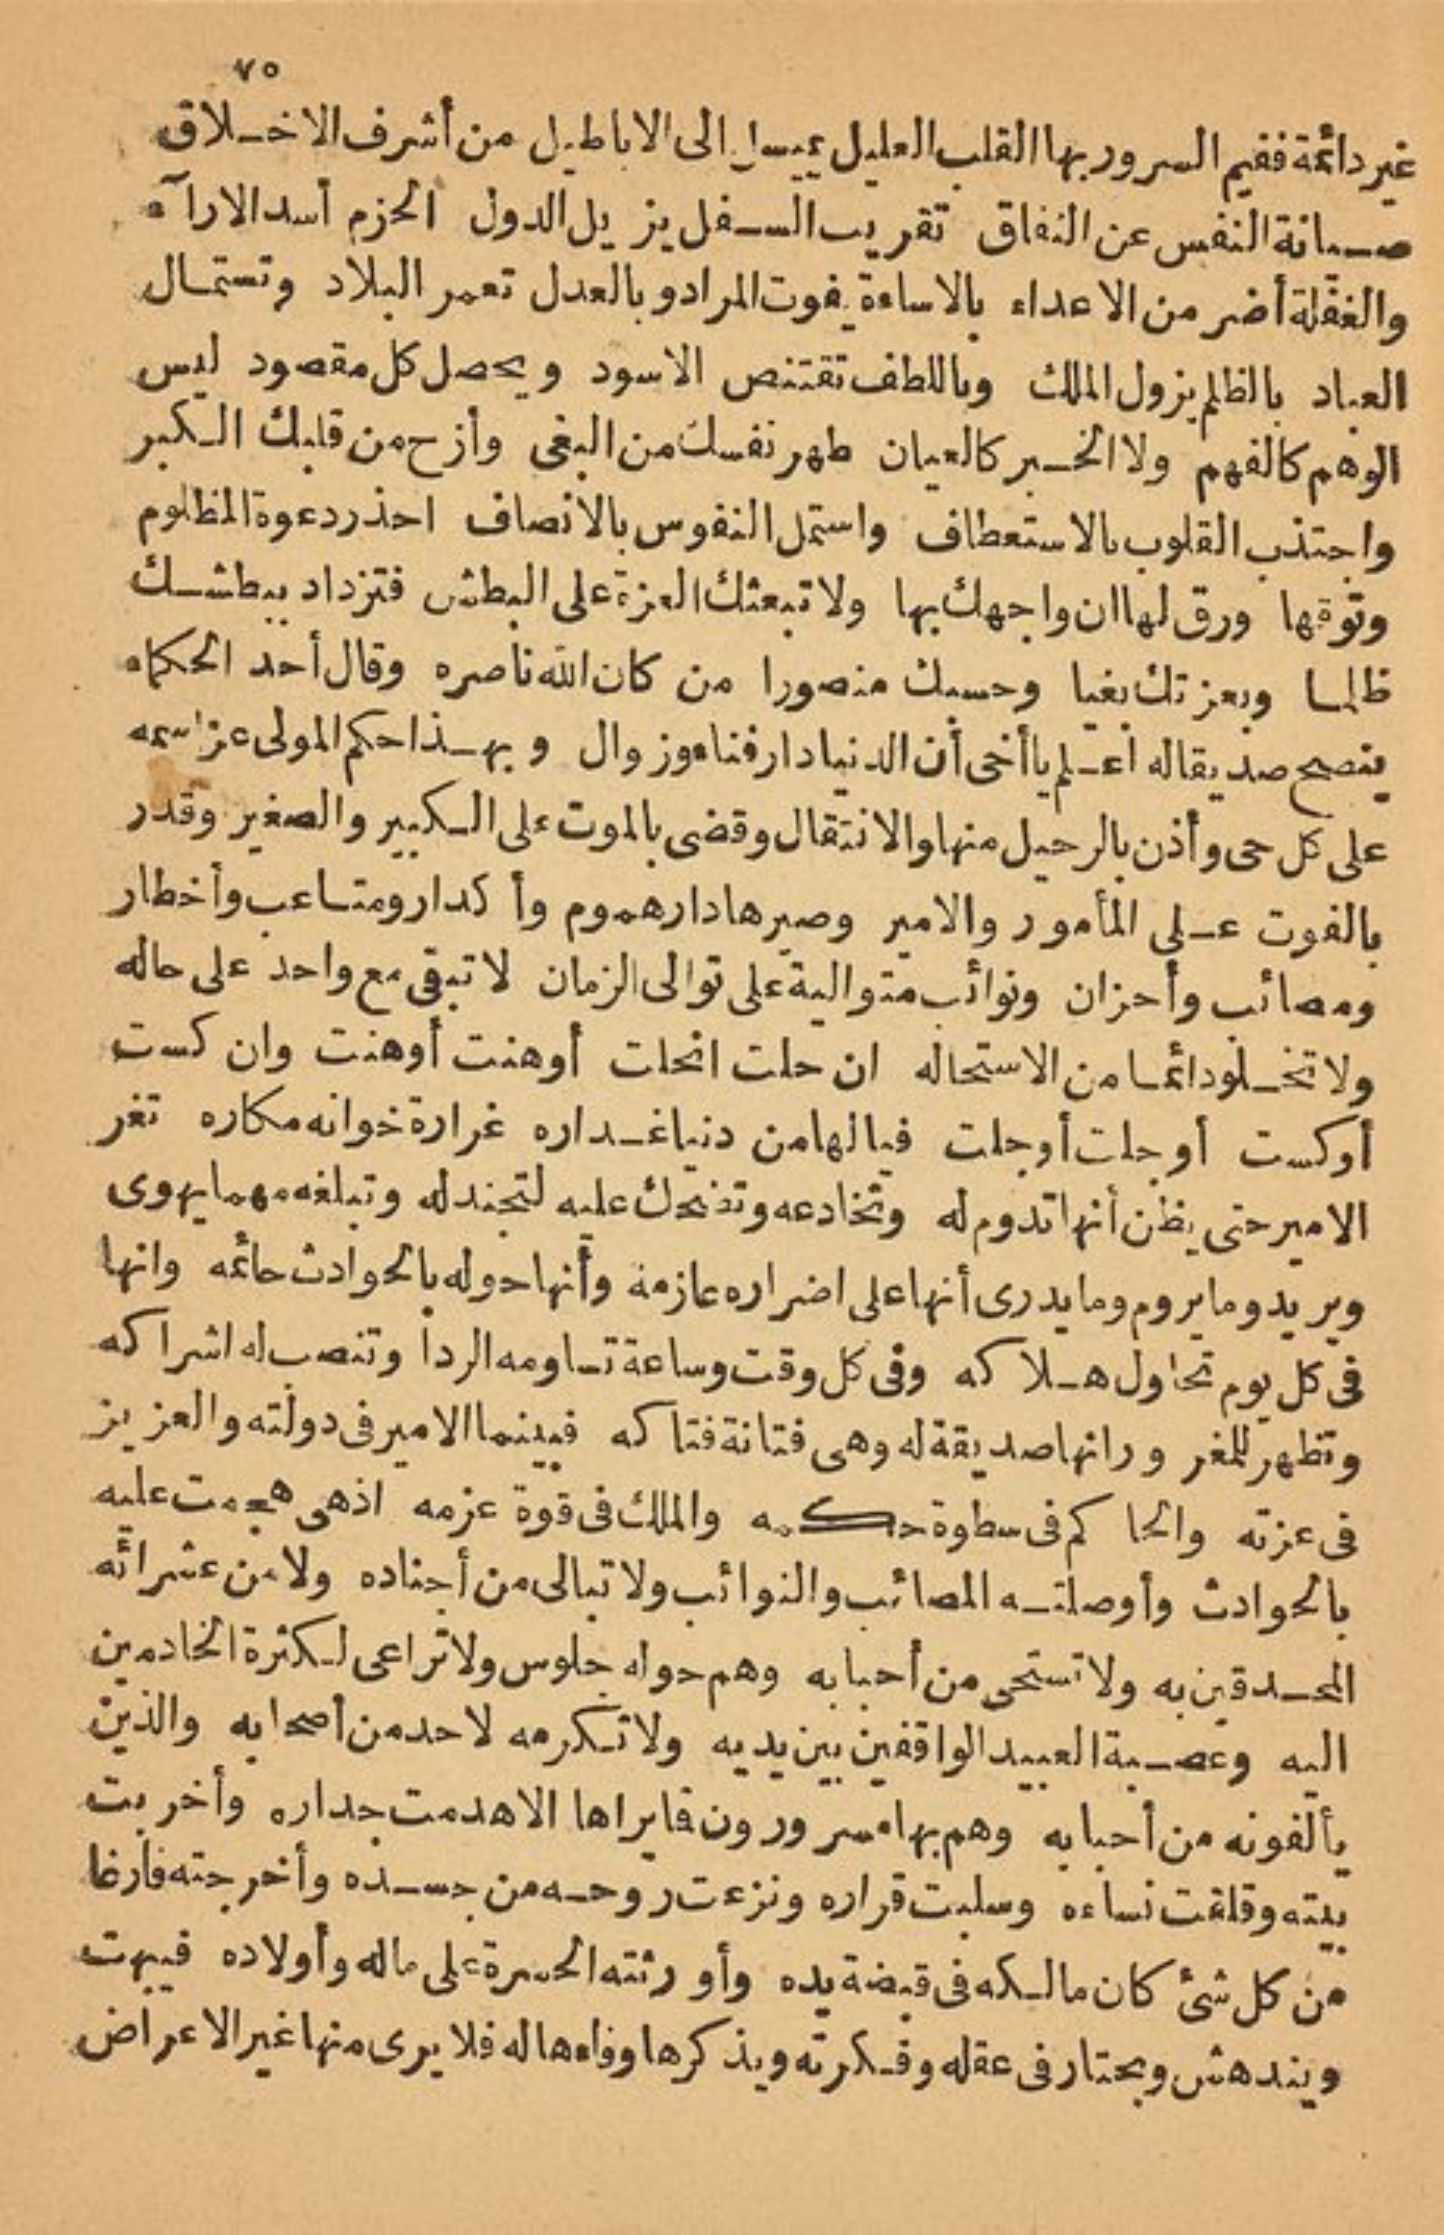 ٧٥
غير دائمة ففيم السرور بها القلب العليل يميل الى الاباطيل من أشرف الاخلاق
صيانة النفس عن النفاق تقريب السفل يزيل الدول الحزم أسد الاراء
والغفلة أضر من الاعداء بالاساءة يفوت المراد وبالعدل تعمر البلاد وتستمال
العباد بالظلم يزول الملك وباللطف تقتنص الاسود ويحصل كل مقصود ليس
الوهم كالفهم ولا الخبر كالعيان طهر نفسك من البغى وأزح من قلبك الكبر
واجتذب القلوب بالاستعطاف واستمل النفوس بالانصاف احذر دعوة المظلوم
وتوقها ورق لها ان واجهك بها ولا تبعثك العزة على البطش فتزداد ببطشك
ظلما وبعزتك بغيا وحسبك منصورا من كان الله ناصره وقال أحد الحكماء
ينصح صديقا له اعلم يا أخى أن الدنيا دار فناء وزوال وبهذا حكم المولى عز اسمه
على كل حى وأذن بالرحيل منها والانتقال وقضى بالموت على الكبير والصغير وقدر
بالفوت على المأمور والامير وصيرها دار هموم وأكدار ومتاعب وأخطار
ومصائب وأحزان ونوائب متوالية على توالى الزمان لا تبقى مع واحد على حاله
ولا تخلو دائما من الاستحاله ان حلت انحلت أوهنت أوهنت وان كست
أوكست أو جلت أوجلت فيا لها من دنيا غداره غرارة خوانه مكاره تغر
الامير حتى يظن أنها تدوم له وتخادعه وتضحك عليه لتجندله وتبلغه مهما يهوى
ويريد وما يروم وما يدرى أنها على اضراره عازمة وأنها حوله بالحوادث حائمه وانها
فى كل يوم تحاول هلاكه وفى كل وقت وساعة تساومه الردا وتنصب له اشراكه
وتظهر للمغرور انها صديقة له وهى فتانة فتاكه فبينما الامير فى دولته والعزيز
فى عزته والحاكم فى سطوة حكمه والملك فى قوة عزمه اذ هى هجمت عليه
بالحوادث وأوصلته المصائب والنوائب ولا تبالى من أجناده ولا من عشرائه
المحدقين به ولا تستحى من أحبابه وهم حوله جلوس ولا تراعى لكثرة الخادمين
اليه وعصبة العبيد الواقفين بين يديه ولا تكرمه لاحد من أصحابه والذين
يألفونه من أحبابه وهم بها مسرورون فايراها الا هدمت جداره وأخربت
بيته وقلقت نساءه وسلبت قراره ونزعت روحه من جسده وأخرجته فارغا
من كل شئ كان مالكه فى قبضة يده وأورثته الحسرة على ماله وأولاده فيبهت
ويندهش ويحتار فى عقله وفكرته ويذكرها وفاءها له فلا يرى منها غير الاعراض